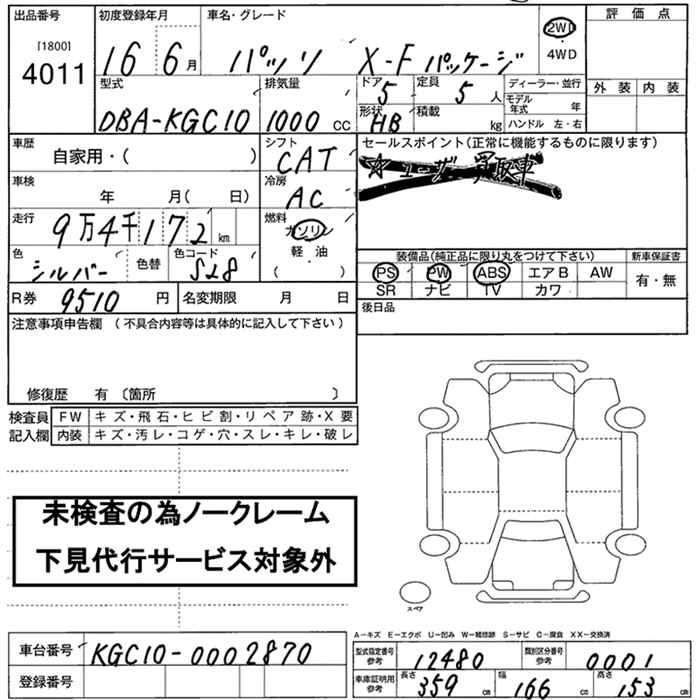 出品番号 初度登録年月 車名・グレード 2WD 評価点
[1800] 4WD
4011 16 6月 パッソ X-F パッケージ
型式 排気量 ドア 定員 ディーラー・並行 外装 内装
5 5人
DBA-KGC10 1000 CC 形状 積載 モデル年式 年
HB kg ハンドル 左・右
車歴 シフト セールスポイント(正常に機能するものに限ります)
自家用・( ) CAT ☆ユーザー買取車
車検 冷房
年 月( 日) AC
走行 燃料
9万4千172km ガソリン
軽・油
色 色替 色コード ( ) 装備品(純正品に限り丸をつけて下さい) 新車保証書
シルバー S28 PS PW ABS エアB AW 有・無
SR ナビ TV カワ
R券 9510円 名変期限 月 日 後日品
注意事項申告欄(不具合内容等は具体的に記入して下さい)
修復歴 有 〔箇所 〕
検査員 FW キズ・飛石・ヒビ割・リペア跡・X要
記入欄 内装 キズ・汚レ・コゲ・穴・スレ・キレ・破レ
未検査の為ノークレーム
下見代行サービス対象外
スペア
A－キズ E－エクボ U－凹み W－補修跡 S－サビ C－腐食 XX－交換済
車台番号 KGC10-0002870 型式指定番号 参考 12480 類別区分番号 参考 0001
登録番号 車庫証明用 参考 長さ 359cm 幅 166cm 高さ 153cm